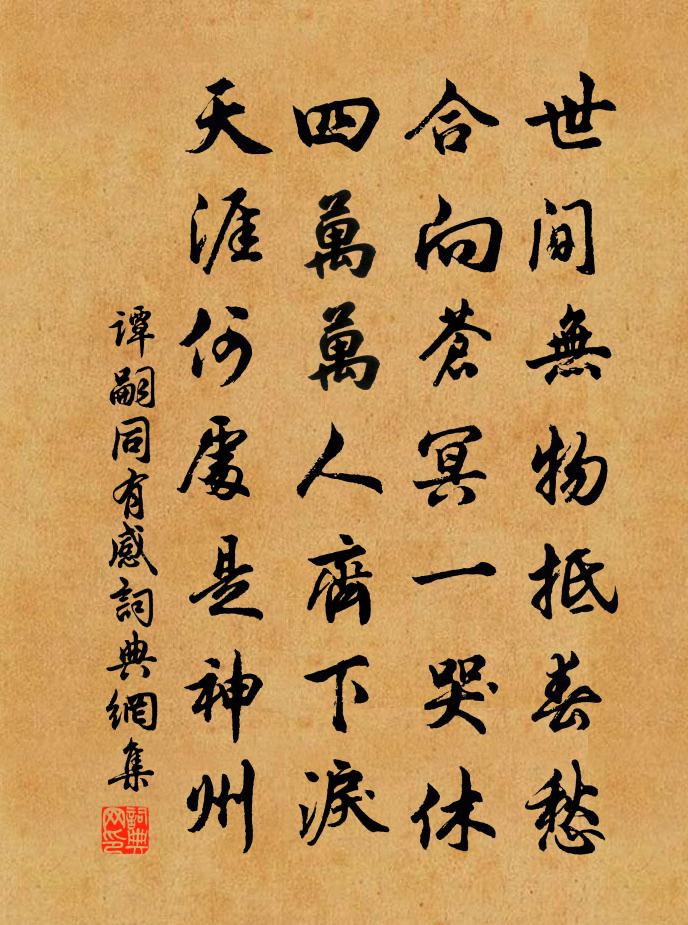 世間無物抵春愁
合向蒼冥一哭休
四萬萬人齊下淚
天涯何處是神州
谭嗣同有感詞典網集
詞典网印